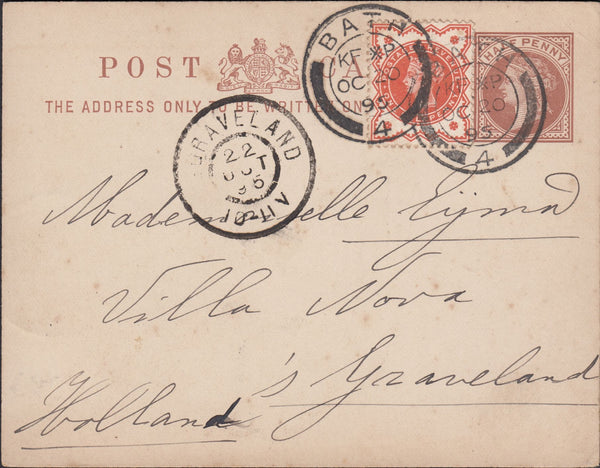 POST CARD
THE ADDRESS ONLY TO BE WRITTEN ON
HALF PENNY
BATH
KF XP
OC 20
95
4
BATH
OC 20
95
4
GRAVELAND
22
OCT
95
Mademoiselle Eijma
Villa Nova
's Graveland
Holland